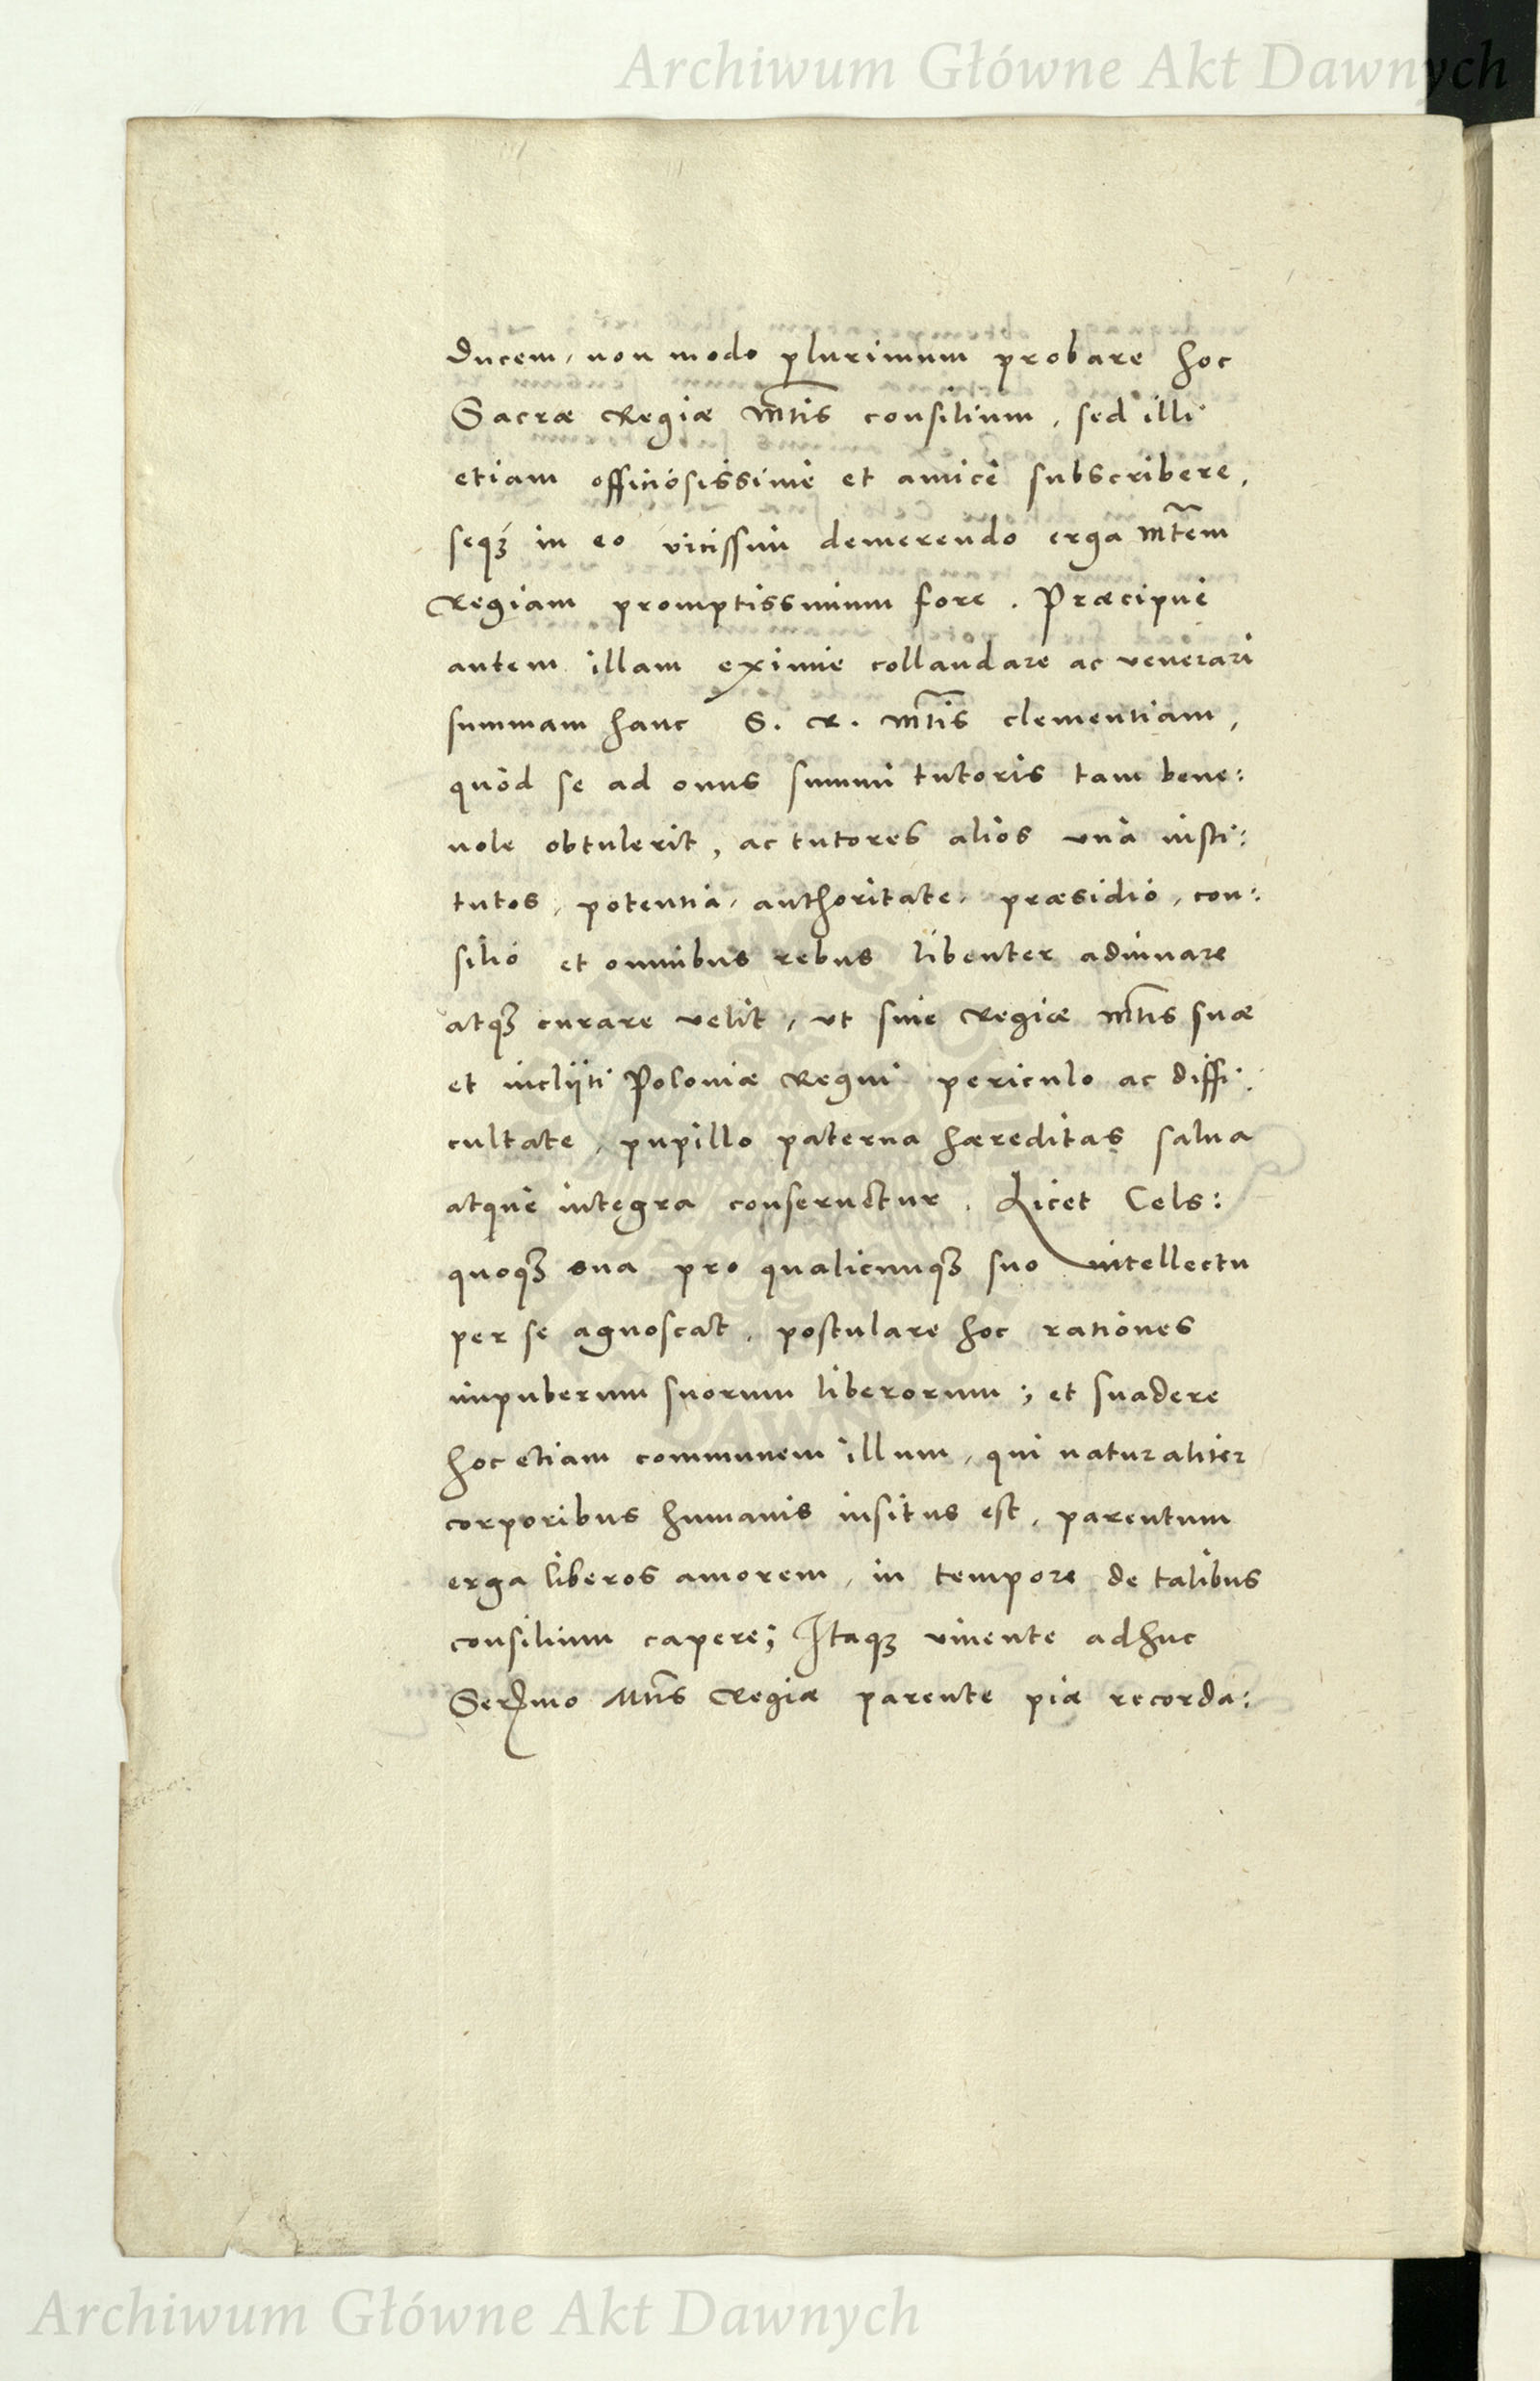 Archiwum Główne Akt Dawnych
Ducem, non modo plurimum probare hoc
Sacræ Regiæ Mtis consilium, sed illi
etiam officiosissimè et amicè subscribere,
seqꝫ in eo vicissim demerendo erga Mtem
Regiam promptissimum fore. Præcipuè
autem illam eximiè collaudare ac venerari
summam hanc S. R. Mtis clementiam,
quòd se ad onus summi tutoris tam bene:
uole obtulerit, ac tutores alios vnà insti:
tutos, potentia, authoritate, præsidio, con:
silio et omnibus rebus libenter adiuuare
atqꝫ curare velit, vt sine Regiæ Mtis suæ
et inclijti Poloniæ Regni periculo ac diffi:
cultate, pupillo paterna hæreditas salua
atque integra conseruetur. Licet Cels:
quoqꝫ sua pro qualicunqꝫ suo intellectu
per se agnoscat, postulare hoc rationes
impuberum suorum liberorum; et suadere
hoc etiam communem illum, qui naturaliter
corporibus humanis insitus est, parentum
erga liberos amorem, in tempore de talibus
consilium capere; Itaqꝫ viuente adhuc
Sermo Mtis Regiæ parente piæ recorda:
Archiwum Główne Akt Dawnych